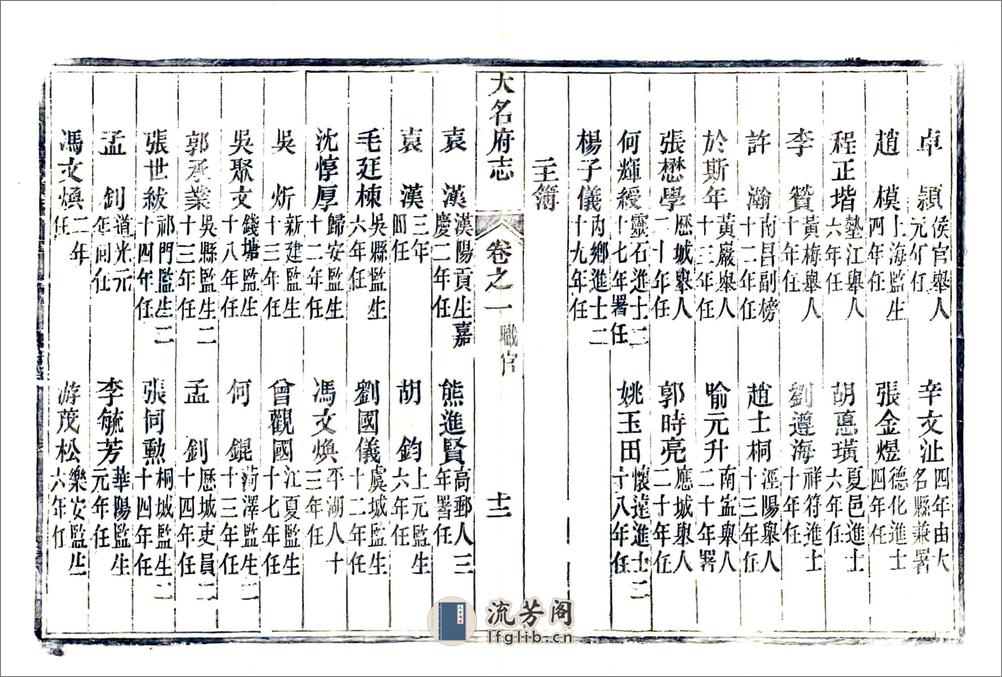 卓　頴 侯官舉人元年任　辛文沚 四年由大名縣兼署
趙　模 上海監生四年任　張金煜 德化進士四年任
程正堦 墊江舉人六年任　胡悳璜 夏邑進士六年任
李　贊 黃梅舉人十年任　劉遵海 祥符進士十年任
許　瀚 南昌副榜十二年任　趙士桐 涇陽舉人十三年任
於斯年 黃巖舉人十三年任　喻元升 南寍舉人二十年署
張懋學 歷城舉人二十年任　郭時亮 應城舉人二十年任
何輝綬 靈石進士二十七年署任　姚玉田 懷遠進士二十八年任
楊子儀 內鄉進士二十九年任
主簿
大名府志　卷之一　職官　十二
袁　漢 漢陽貢生嘉慶二年任　熊進賢 高郵人三年署任
袁　漢 三年回任　胡　鈞 上元監生六年任
毛廷棟 吳縣監生六年任　劉國儀 虞城監生十二年任
沈惇厚 歸安監生十二年任　馮文煥 平湖人十三年任
吳　炘 新建監生十三年任　曾觀國 江夏監生十七年任
吳聚文 錢塘監生十八年任　何　錕 菏澤監生二十三年任
郭承業 吳縣監生二十三年任　孟　釗 歷城吏員二十四年任
張世紱 祁門監生二十四年任　張同勲 桐城監生二十四年任
孟　釗 道光元年回任　李毓芳 華陽監生元年任
馮文煥 二年任　游茂松 樂安監生六年任
流芳阁
lfglib.cn